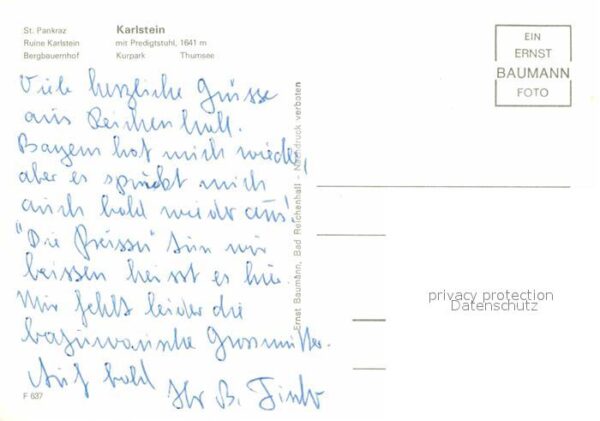 St. Pankraz
Ruine Karlstein
Bergbauernhof
Karlstein
mit Predigtstuhl, 1641 m
Kurpark Thumsee
EIN
ERNST
BAUMANN
FOTO
Viele herzliche Grüsse
aus Reichenhall.
Bayern hat mich wieder,
aber es spuckt mich
auch bald wieder aus!
"Die Preissn" tun wir
beissen heisst es hier.
Mir fehlt leider die
bajuwarische Grossmutter.
Auf bald Ihr B.
F 637
Ernst Baumann, Bad Reichenhall - Nachdruck verboten
privacy protection
Datenschutz